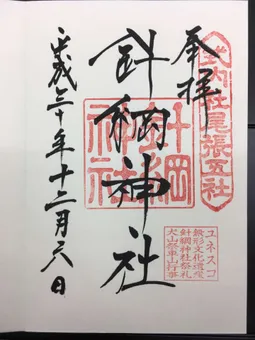 式内社尾張五社
奉拝
針綱神社
針綱
神社
平成三十年十二月六日
ユネスコ
無形文化遺産
針綱神社祭礼
犬山祭車山行事